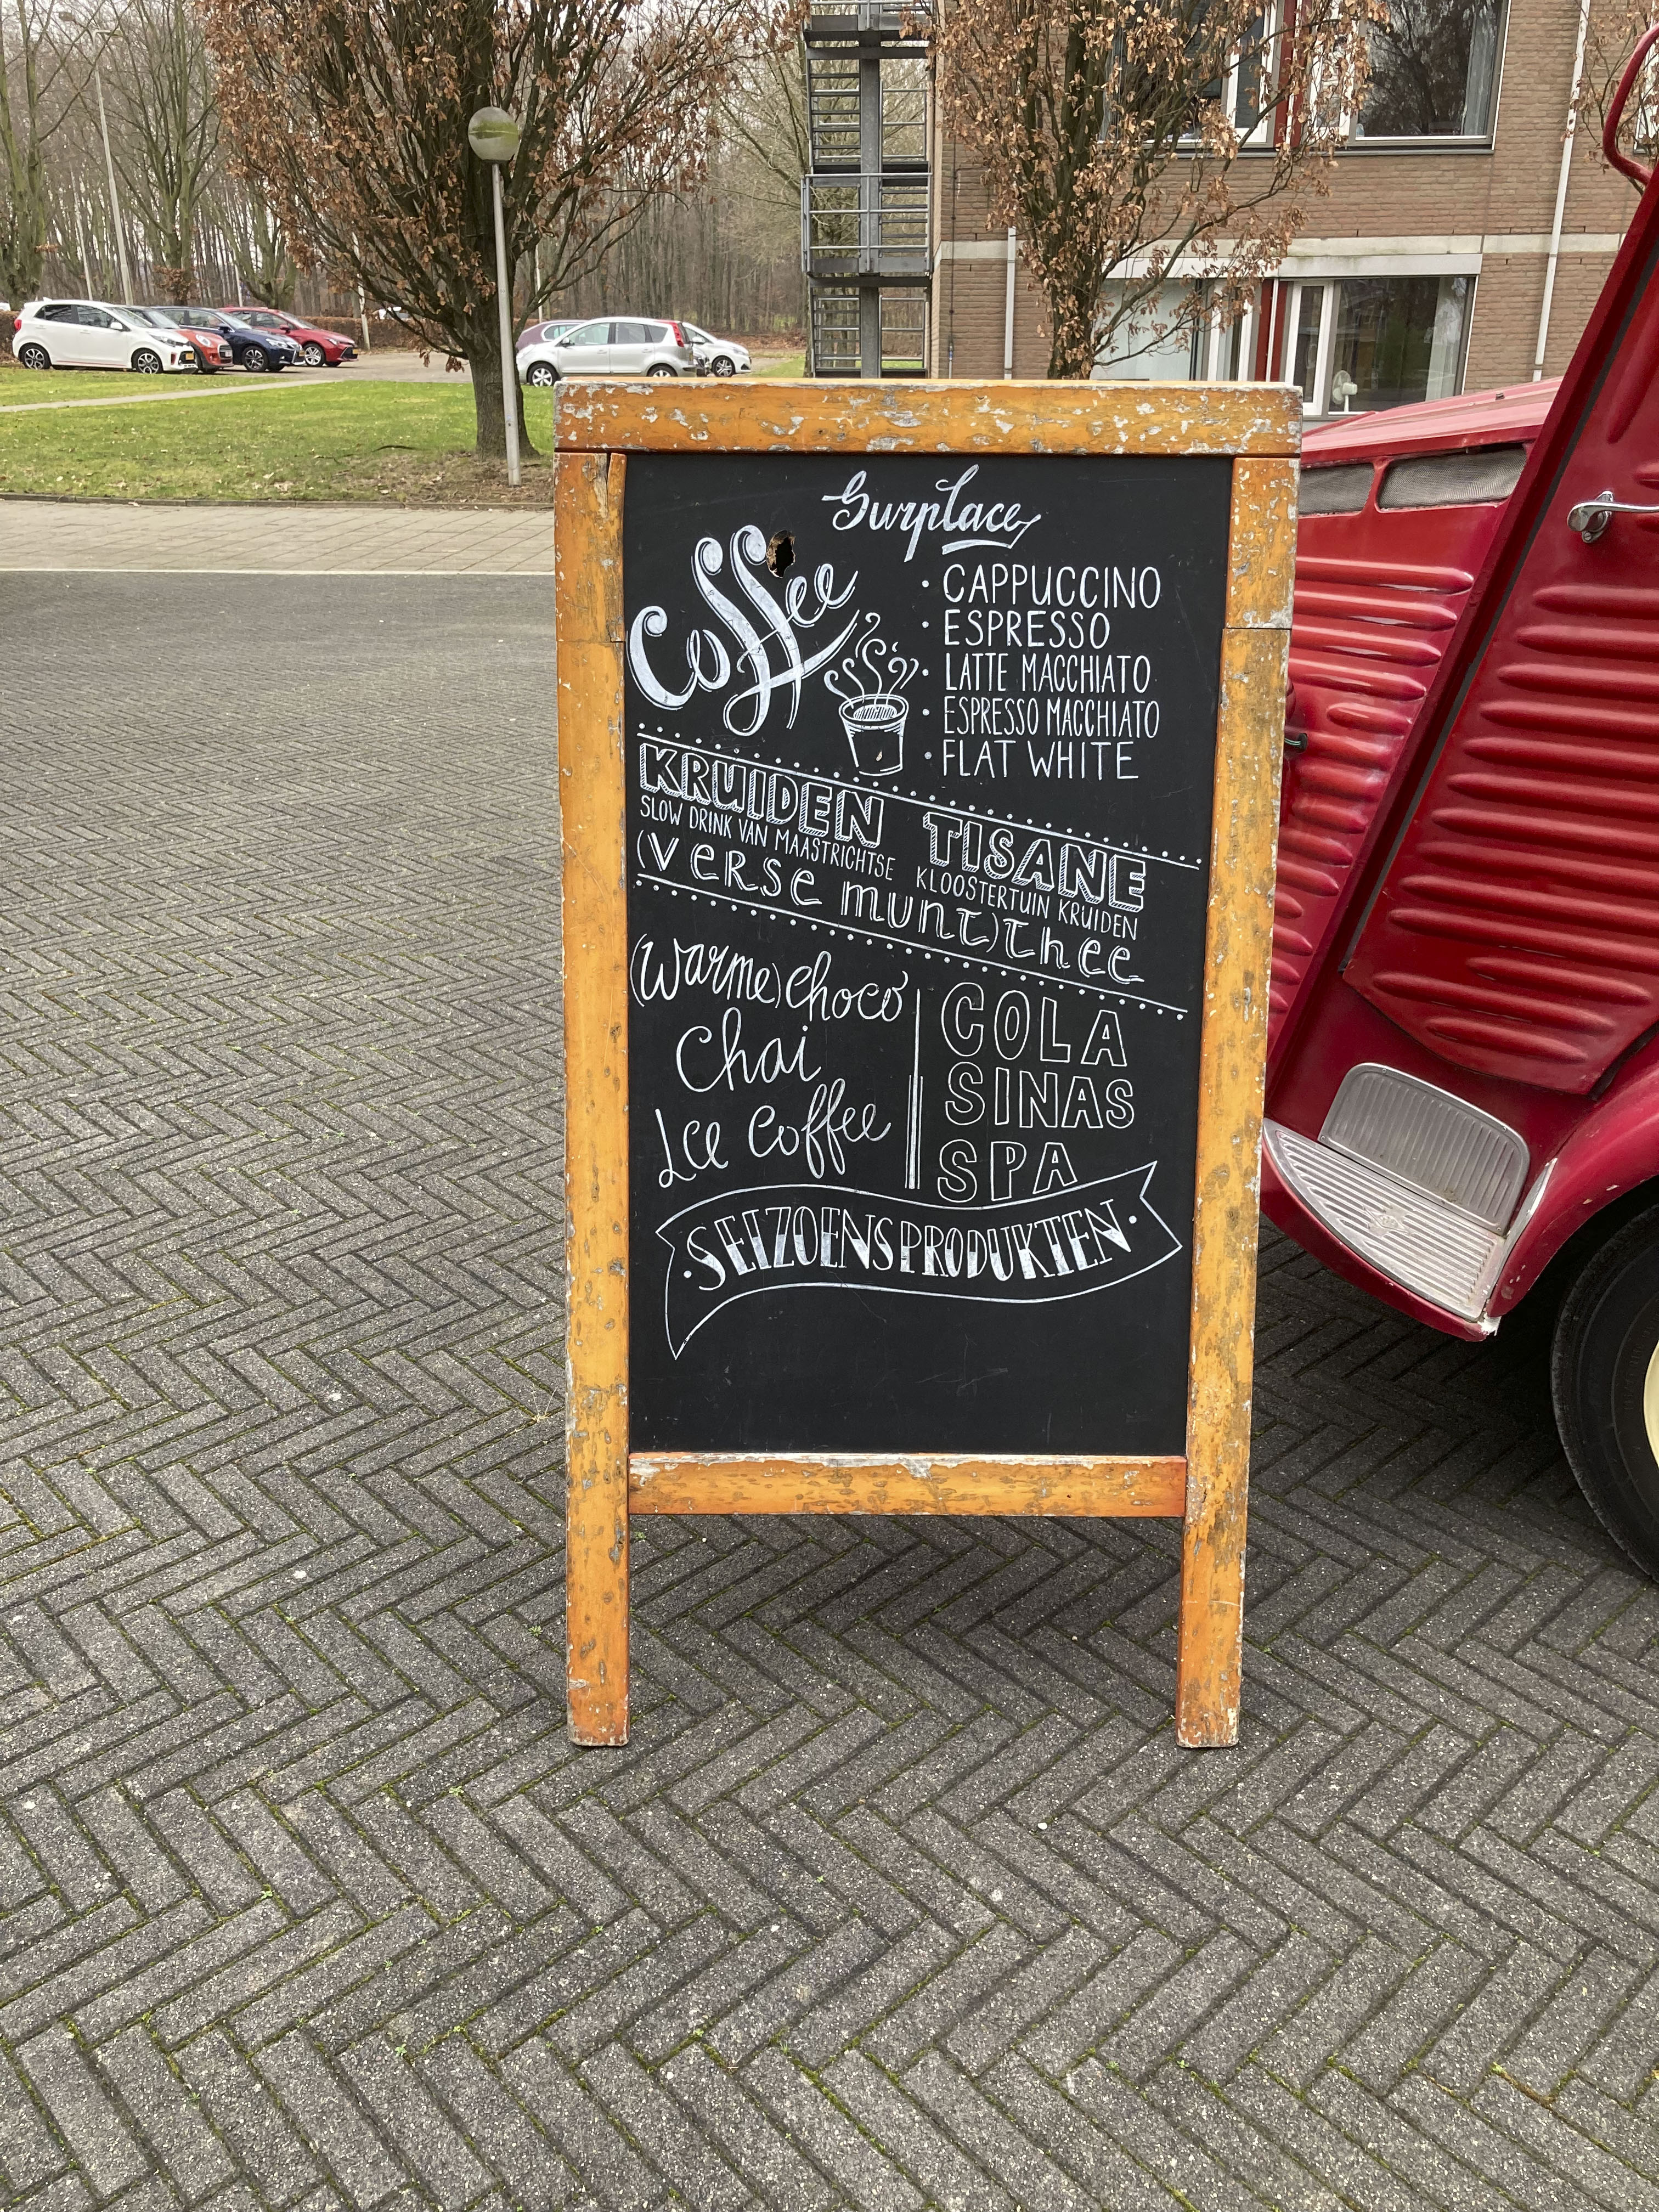 Surplace
Coffee
· CAPPUCCINO
· ESPRESSO
· LATTE MACCHIATO
· ESPRESSO MACCHIATO
· FLAT WHITE
KRUIDEN TISANE
SLOW DRINK VAN MAASTRICHTSE KLOOSTERTUIN KRUIDEN
(verse munt) thee
(warme) choco
Chai
Ice coffee
COLA
SINAS
SPA
· SEIZOENSPRODUKTEN ·